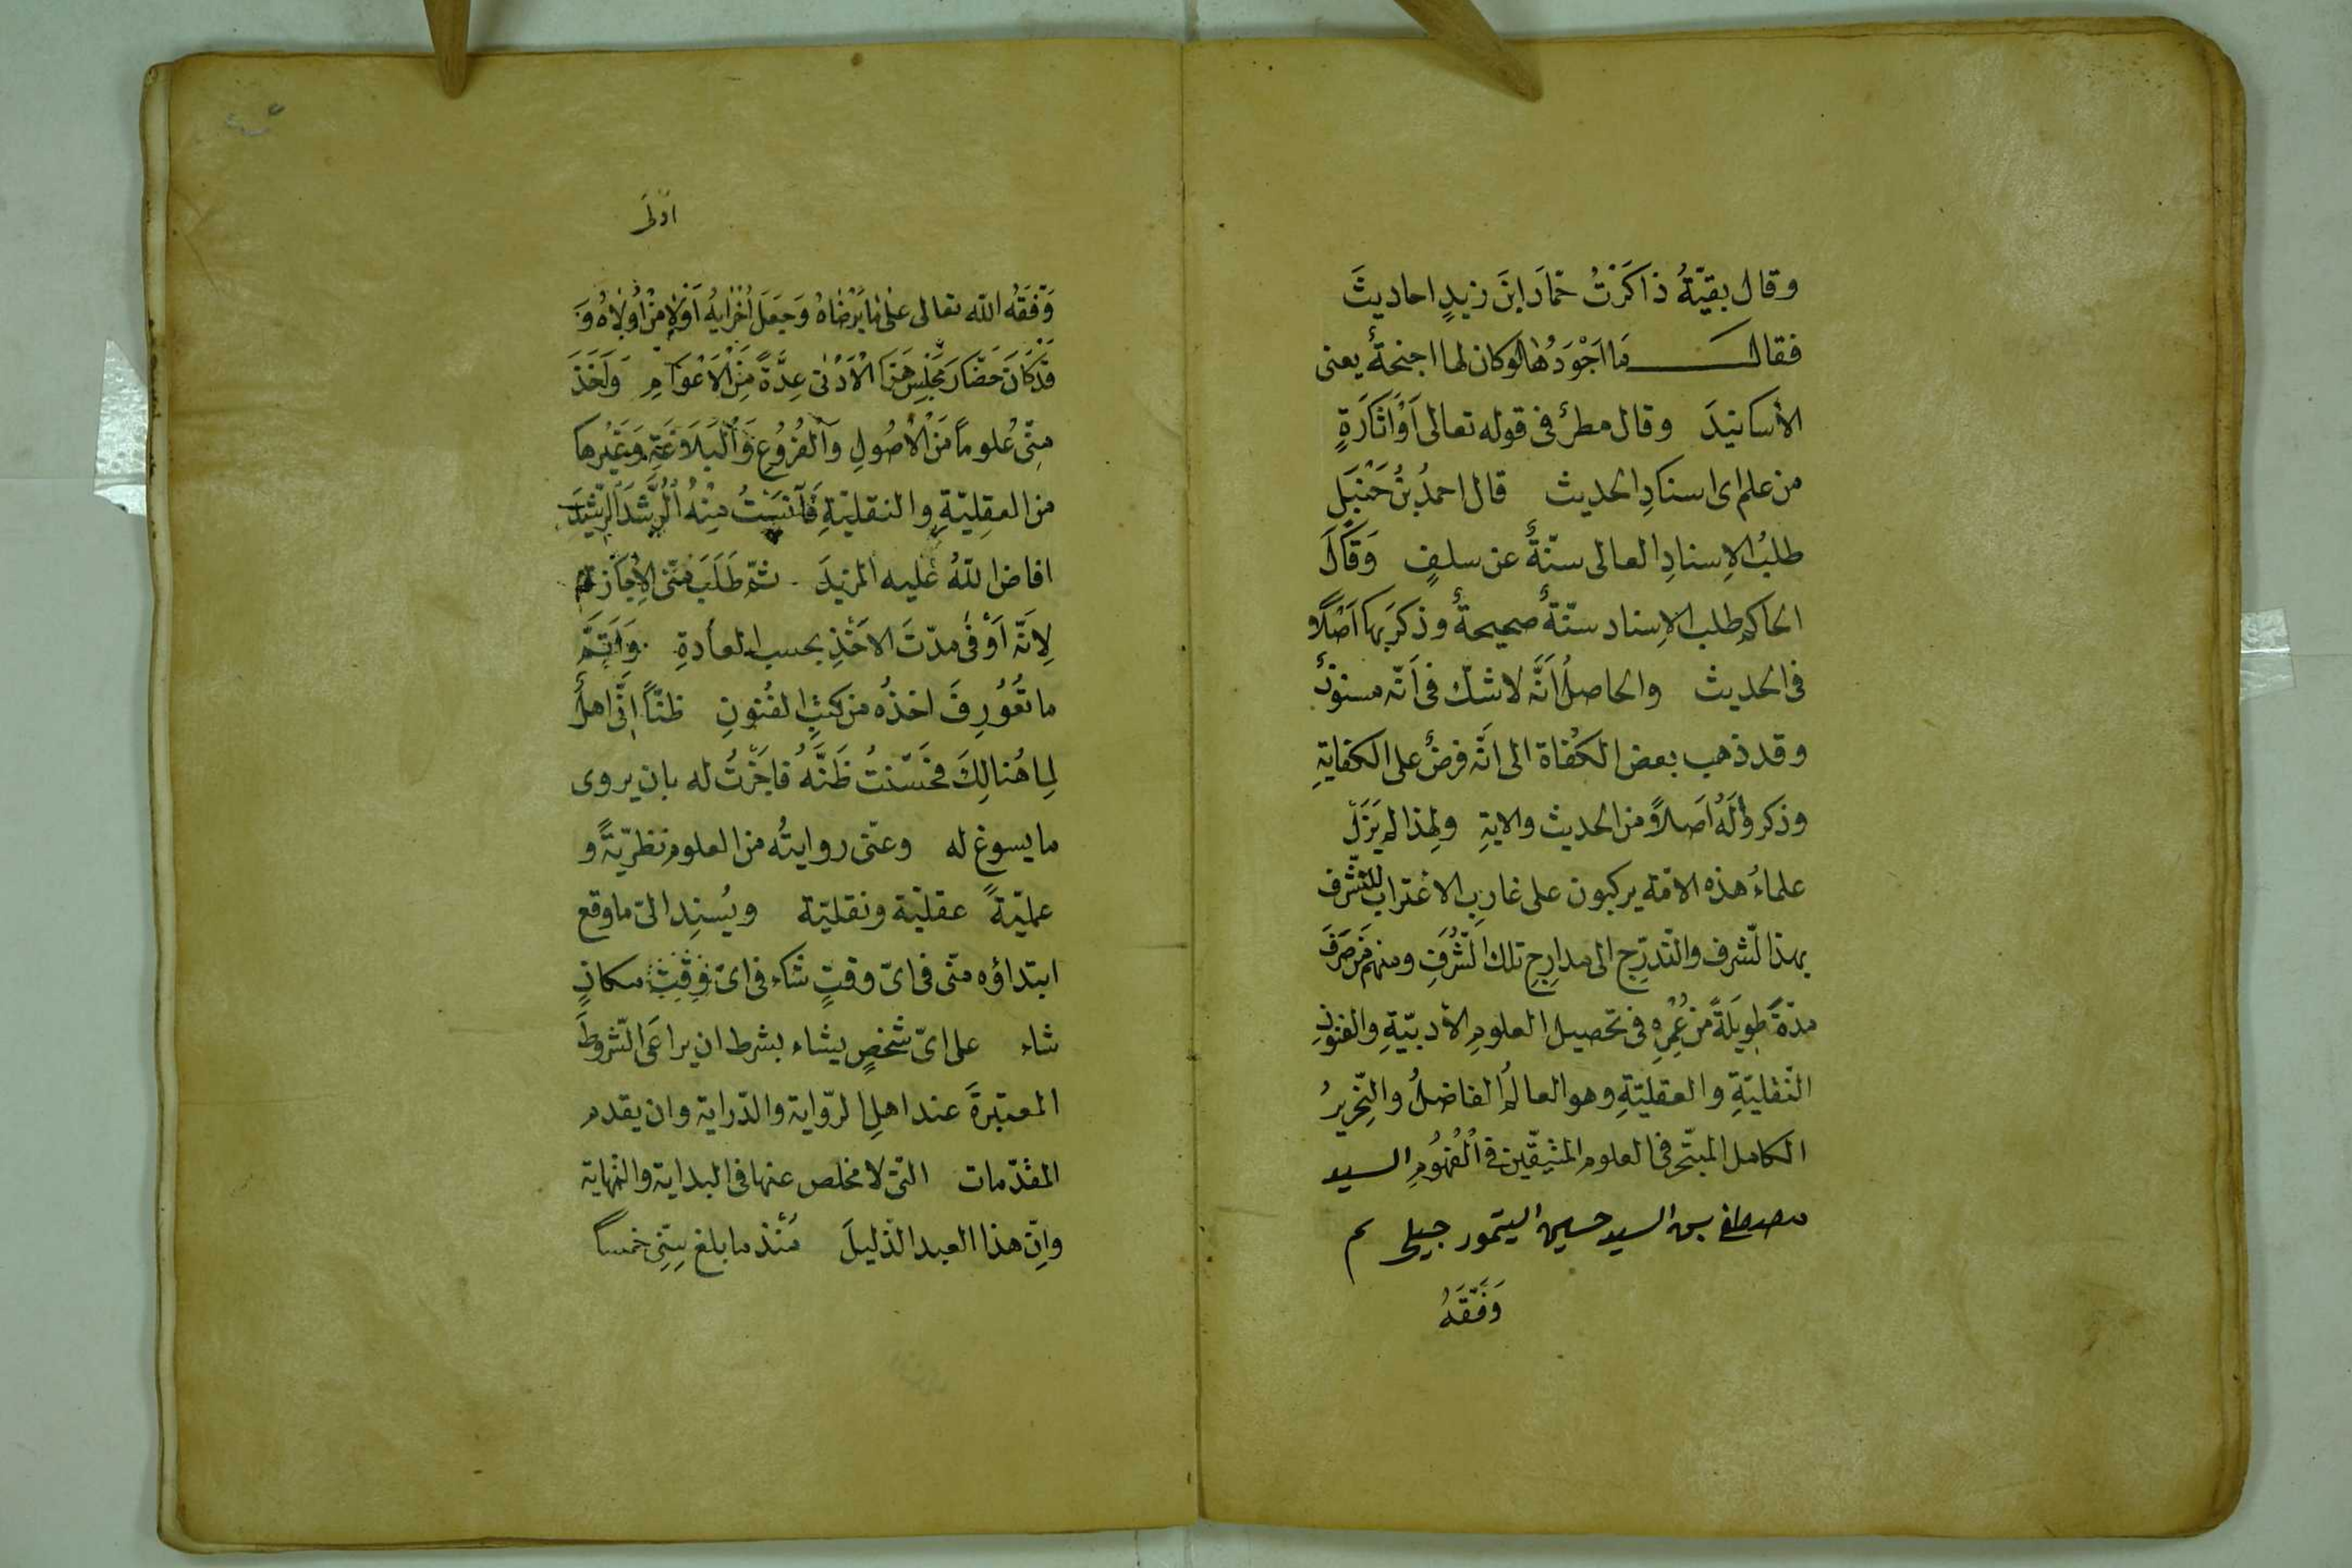 وقال بقيّةُ ذاكَرْتُ حمّادَ ابنَ زيدٍ احاديثَ
فقال مَا اَجْوَدُهَا لوكان لها اجنحةٌ يعنى
الأسانيدَ وقال مطرٌ فى قوله تعالى اَوْ اَثَارَةٍ
من علم اى اسنادِ الحديث قال احمدُ بنُ حَنْبَلٍ
طلبُ الاِسنادِ العالى سنّةٌ عن سلفٍ وَقَالَ
الحاكم طلب الاِسناد سنّةٌ صحيحةٌ وذكرَ بها اَصْلاً
فى الحديث والحاصلُ اَنَّه لا شكّ فى اَنّه مسنونٌ
وقد ذهب بعض الكُفاة الى اَنّه فرضٌ على الكفايةِ
وذكروا لَهُ اَصلاً من الحديث والاية ولهذا لم يَزَلْ
علماءُ هذه الامّة يركبون على غاربِ الاغتراب للتّشرّف
بهذا لشّرف والتّدرّج الى مدارِجِ تلك الشُّرَفِ ومنهم مَن صَرَفَ
مدّةً طويلَةً من عُمُرِهِ فى تحصيل العلومِ الأدبيّةِ والفنونِ
النّقليّةِ والعقليّةِ وهو العالمُ الفاضلُ والنّحريرُ
الكامل المتبحّر فى العلوم فى الْفُهُومِ السيد
مصطفى بن السيد حسين التيمور جيلى
وَفَّقَهُ
اَوْلَى
وَفَّقَهُ الله تعالى على ما يَرْضَاهُ وَجَعَلَ اُخْرَايهُ اَوْلَى مِنْ اُولَاهُ وَ
قَدْ كَانَ حَضَارَ مَجْلِسَ هَذَا الْاَدْنٰى عِدَّةً مِنَ الْاَعْوَامِ وَاَخَذَ
مِنّى عُلومًا مِنَ الْأُصُولِ وَالْفُرُوعِ وَالْبَلَاغَةِ وَغَيْرِها
من العقليّةِ والنقليّةِ فَآنَسْتُ مِنْهُ الرُّشْدَ الرَّشِيدَ
افاض اللّهُ عليه المزيدَ ثمّ طَلَبَ مِنّى الاِجَازة
لِاَنّه اَوْفٰى مدّتَ الاَخْذِ بحسب العادةِ وَاَتَمَّ
ما تُعُورِفَ اخذُه من كتبِ الفُنونِ ظنّاً اَنّى اهلٌ
لِما هُنالِكَ فَحَسّنْتُ ظَنَّهُ فاجَزْتُ له بان يروى
ما يسوغ له وعنّى روايتُه من العلوم نظريّةً و
عمليّةً عقليّة ونقليّة ويُسنِد الىّ ما وقع
ابتداؤه منّى فى اىّ وقتٍ شاء فى اىّ مكانٍ
شاء على اىّ شخصٍ يشاء بشرط ان يراعَى الشّروطَ
المعتبَرةَ عند اهلِ الرّواية والدّراية وان يقدم
المقدّمات التى لا مخلص عنها فى البداية والنّهاية
وانّ هذا العبد الذّليلَ مُنْذ ما بلغ سِنِى خمساً